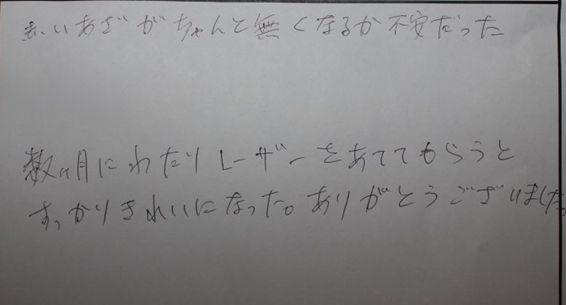 赤いあざがちゃんと無くなるか不安だった
数ヶ月にわたりレーザーをあててもらうと
すっかりきれいになった。ありがとうございました。